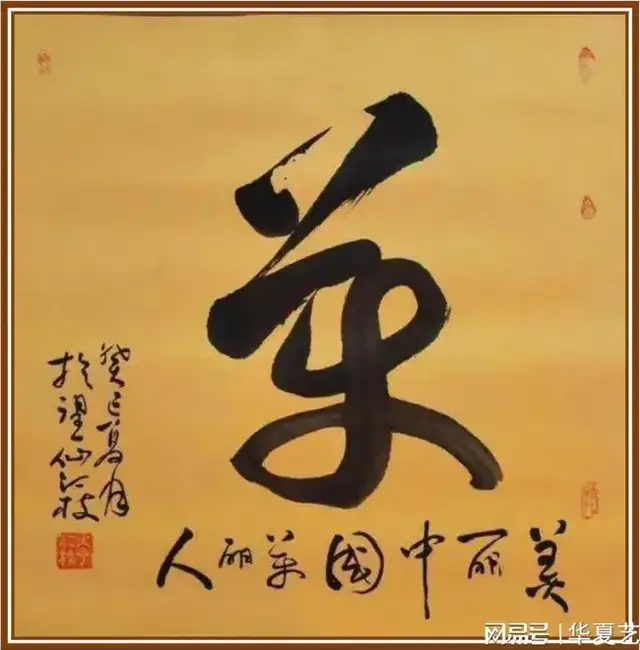 美
美丽中国美丽人
癸巳夏月
於望仙
网易号 | 华夏艺